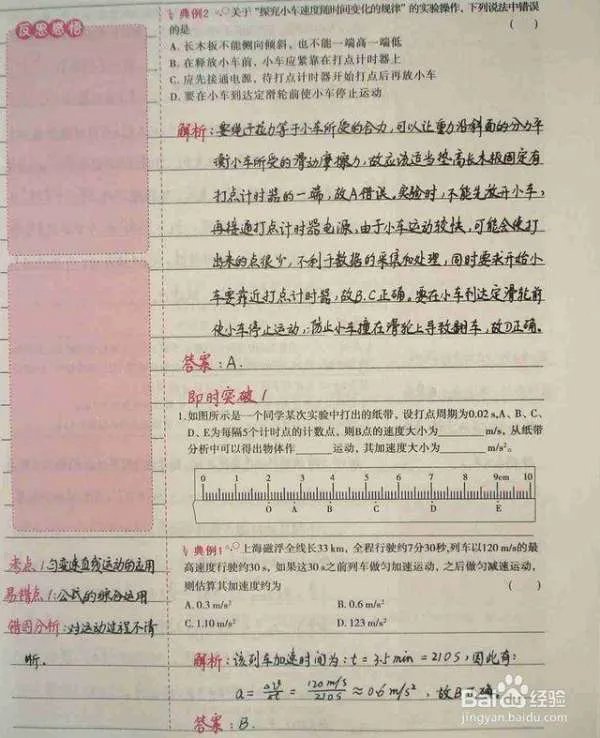 反思感悟
典例2 关于“探究小车速度随时间变化的规律”的实验操作，下列说法中错误
的是 ( )
A. 长木板不能侧向倾斜，也不能一端高一端低
B. 在释放小车前，小车应紧靠在打点计时器上
C. 应先接通电源，待打点计时器开始打点后再放小车
D. 要在小车到达定滑轮前使小车停止运动
解析：要绳子拉力等于小车所受的合力，可以让重力沿斜面的分力平
衡小车所受的滑动摩擦力，故应该适当垫高长木板固定有
打点计时器的一端，故A错误。实验时，不能先放开小车，
再接通打点计时器电源，由于小车运动较快，可能会使打
出来的点很少，不利于数据的采集和处理，同时要求开始小
车要靠近打点计时器，故B.C正确。要在小车到达定滑轮前
使小车停止运动，防止小车撞在滑轮上导致翻车，故D正确。
答案：A.
即时突破1
1. 如图所示是一个同学某次实验中打出的纸带，设打点周期为0.02 s,A、B、C、
D、E为每隔5个计时点的计数点，则B点的速度大小为______ m/s，从纸带
分析中可以得出物体作______运动，其加速度大小为______ m/s²。
0 1 2 3 4 5 6 7 8 9cm 10
O A B C D E
典例1 上海磁浮全线长33 km，全程行驶约7分30秒,列车以120 m/s的最
高速度行驶约30 s，如果这30 s之前列车做匀加速运动，之后做匀减速运动，
则估算其加速度约为 ( )
A. 0.3 m/s² B. 0.6 m/s²
C. 1.10 m/s² D. 123 m/s²
解析：该列车加速时间为：t = 3.5 min = 210 S，因此有：
a = Δv/Δt = 120 m/s / 210 S ≈ 0.6 m/s²，故B正确。
答案：B.
考点1:匀变速直线运动的应用
易错点1:公式的综合运用
错因分析：对运动过程不清
晰。
Baidu经验
jingyan.baidu.com